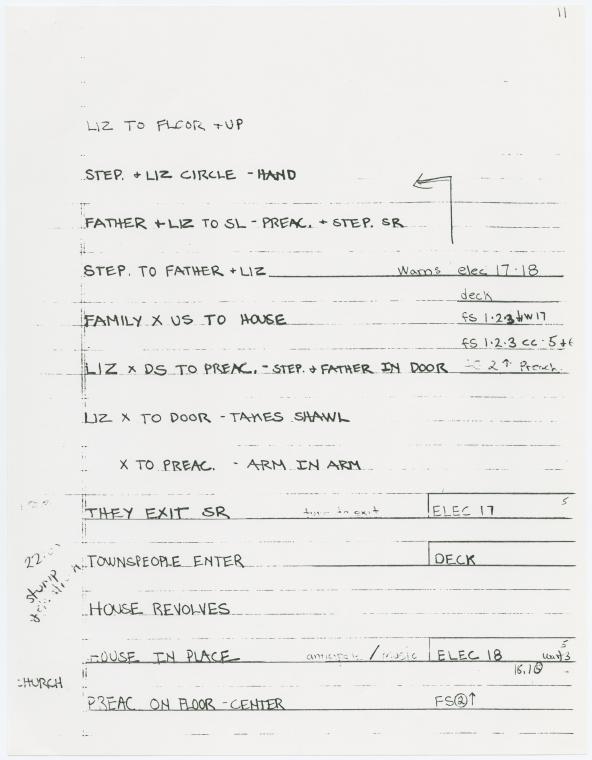 11
LIZ TO FLOOR + UP
STEP. + LIZ CIRCLE - HAND
FATHER + LIZ TO SL - PREAC. + STEP. SR
STEP. TO FATHER + LIZ Warns elec 17·18
deck
FAMILY X US TO HOUSE fs 1·2·3 ↓w17
fs 1·2·3 cc·5+6
LIZ X DS TO PREAC. - STEP. + FATHER IN DOOR 2↑ Preach.
LIZ X TO DOOR - TAKES SHAWL
X TO PREAC. - ARM IN ARM
THEY EXIT SR turn to exit ELEC 17 5
TOWNSPEOPLE ENTER DECK
HOUSE REVOLVES
HOUSE IN PLACE anticipate / music ELEC 18 5
CHURCH
PREAC ON FLOOR - CENTER FS②↑